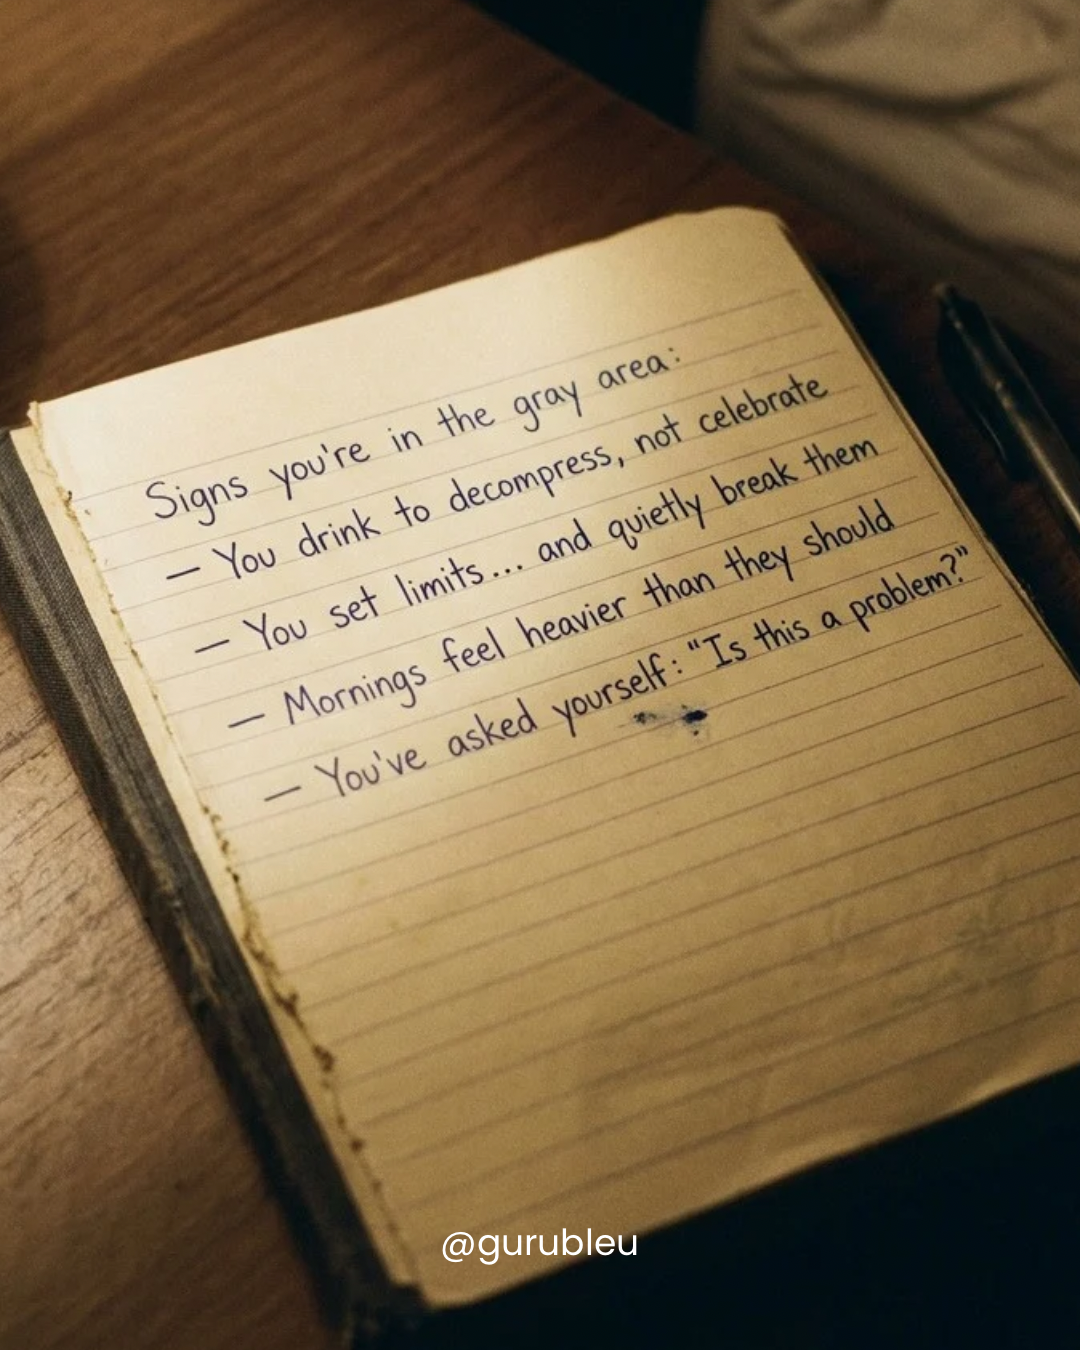 Signs you're in the gray area:
— You drink to decompress, not celebrate
— You set limits... and quietly break them
— Mornings feel heavier than they should
— You've asked yourself: "Is this a problem?"
@gurubleu